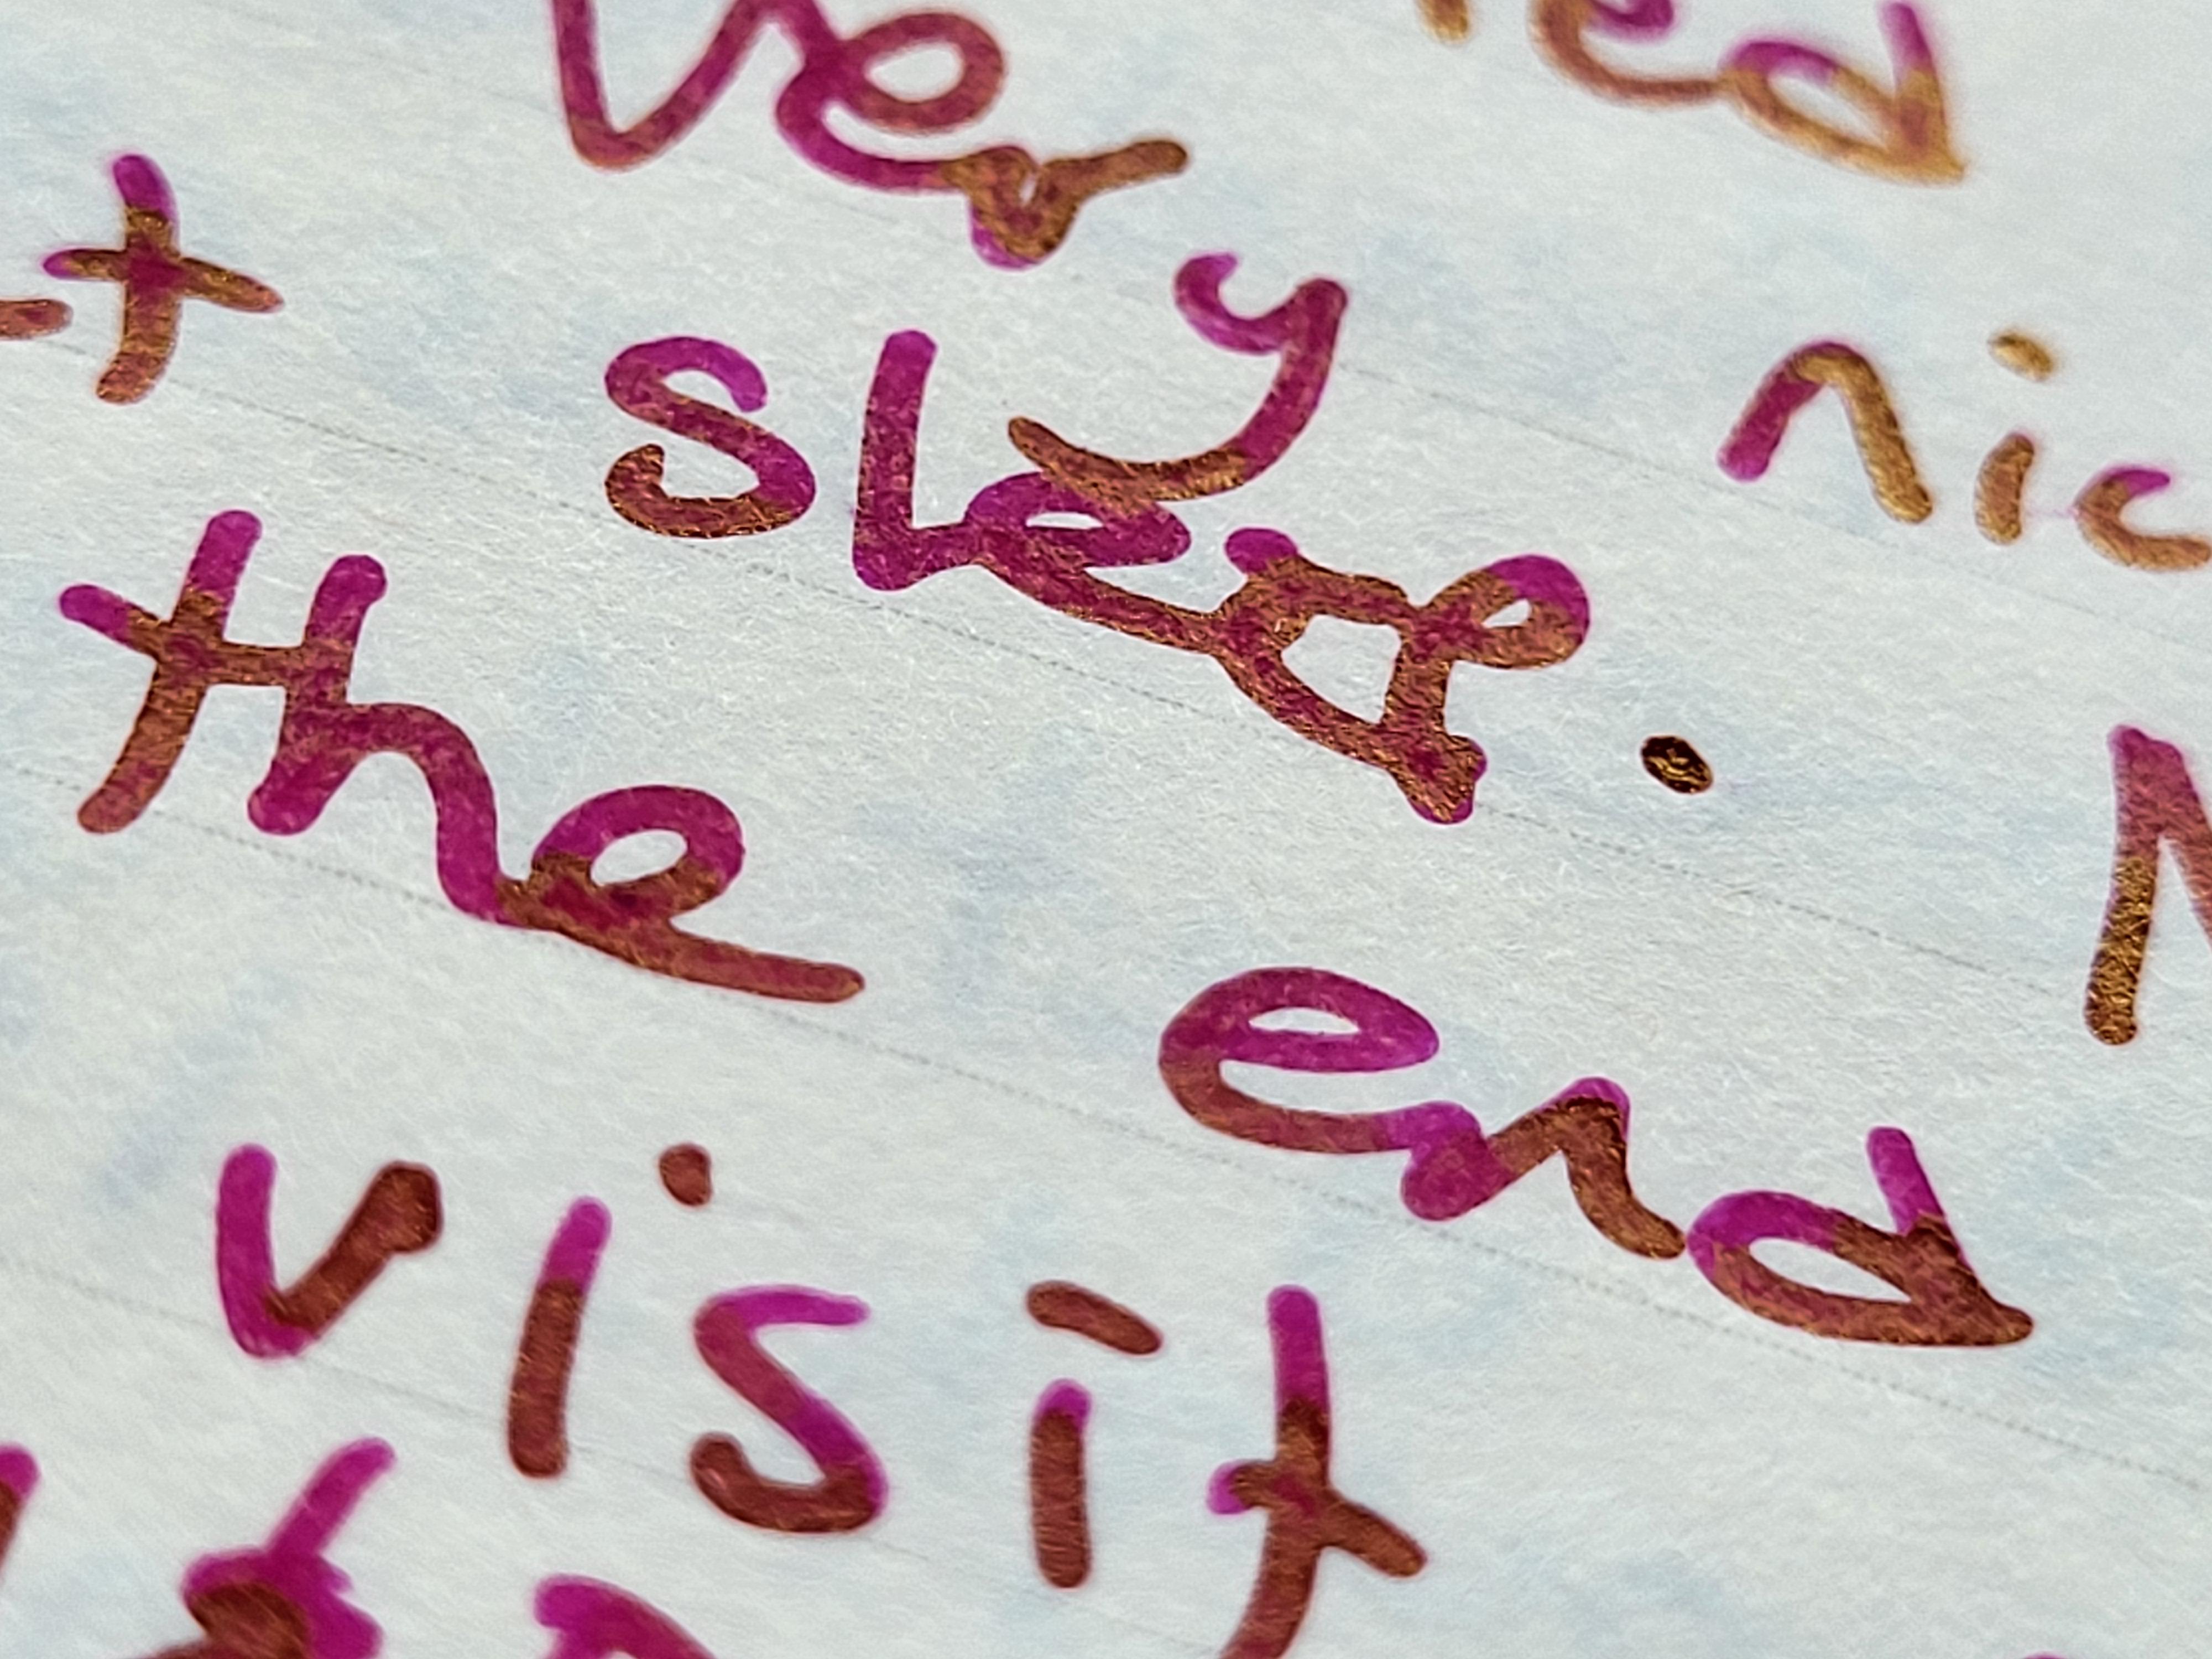 very nic
sleep.
the end
visit